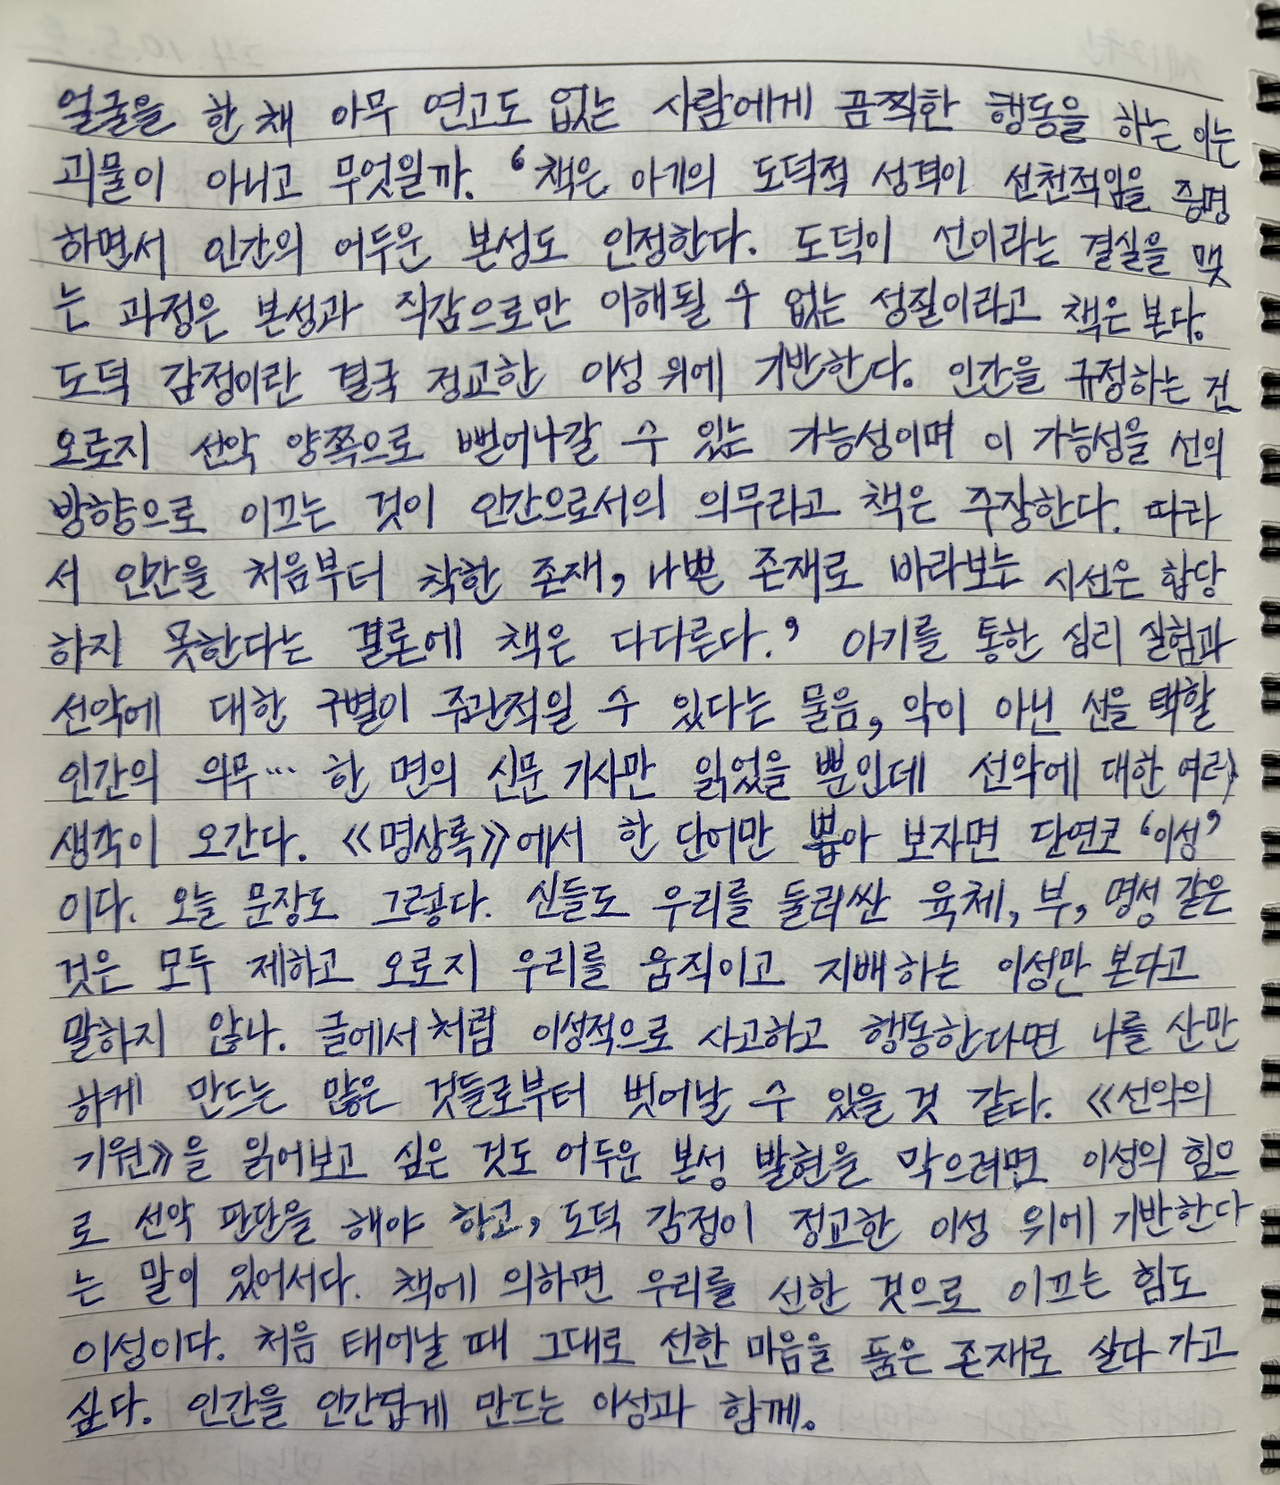 얼굴을 한 채 아무 연고도 없는 사람에게 끔찍한 행동을 하는 이는
괴물이 아니고 무엇일까. ‘책은 아기의 도덕적 성격이 선천적임을 증명
하면서 인간의 어두운 본성도 인정한다. 도덕이 선이라는 결실을 맺
는 과정은 본성과 직감으로만 이해될 수 없는 성질이라고 책은 본다.
도덕 감정이란 결국 정교한 이성 위에 기반한다. 인간을 규정하는 건
오로지 선악 양쪽으로 뻗어나갈 수 있는 가능성이며 이 가능성을 선의
방향으로 이끄는 것이 인간으로서의 의무라고 책은 주장한다. 따라
서 인간을 처음부터 착한 존재, 나쁜 존재로 바라보는 시선은 합당
하지 못한다는 결론에 책은 다다른다.’ 아기를 통한 심리 실험과
선악에 대한 구별이 주관적일 수 있다는 물음, 악이 아닌 선을 택할
인간의 의무… 한 면의 신문 기사만 읽었을 뿐인데 선악에 대한 여러
생각이 오간다. 《명상록》에서 한 단어만 뽑아 보자면 단연코 ‘이성’
이다. 오늘 문장도 그렇다. 신들도 우리를 둘러싼 육체, 부, 명성 같은
것은 모두 제하고 오로지 우리를 움직이고 지배하는 이성만 본다고
말하지 않나. 글에서처럼 이성적으로 사고하고 행동한다면 나를 산만
하게 만드는 많은 것들로부터 벗어날 수 있을 것 같다. 《선악의
기원》을 읽어보고 싶은 것도 어두운 본성 발현을 막으려면 이성의 힘으
로 선악 판단을 해야 하고, 도덕 감정이 정교한 이성 위에 기반한다
는 말이 있어서다. 책에 의하면 우리를 선한 것으로 이끄는 힘도
이성이다. 처음 태어날 때 그대로 선한 마음을 품은 존재로 살다 가고
싶다. 인간을 인간답게 만드는 이성과 함께.